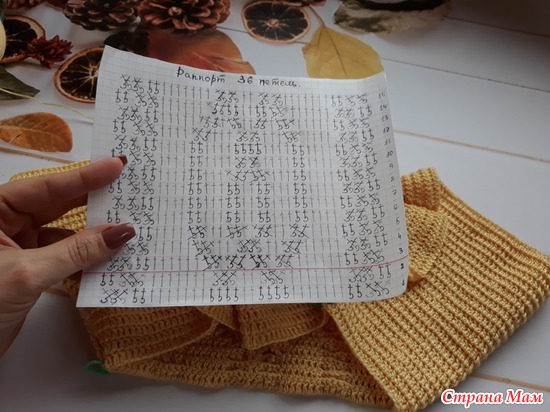 Раппорт 36 петель.
15
14
13
12
11
10
9
8
7
6
5
4
3
2
1
Страна Мам